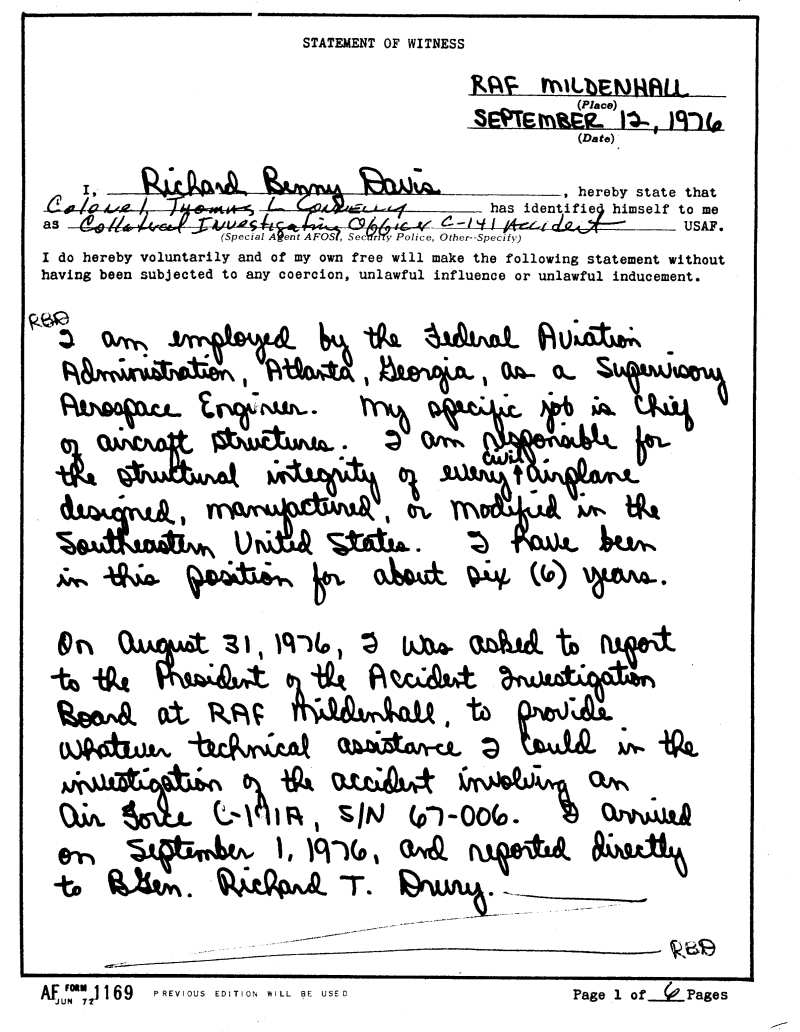 STATEMENT OF WITNESS
RAF MILDENHALL
(Place)
SEPTEMBER 12, 1976
(Date)
I, Richard Benny Davis, hereby state that
Colonel Thomas L. Connelly has identified himself to me
as Collateral Investigating Officer C-141 Accident USAF.
(Special Agent AFOSI, Security Police, Other--Specify)
I do hereby voluntarily and of my own free will make the following statement without
having been subjected to any coercion, unlawful influence or unlawful inducement.
RBD
I am employed by the Federal Aviation
Administration, Atlanta, Georgia, as a Supervisory
Aerospace Engineer. My specific job is Chief
of aircraft structures. I am responsible for
the structural integrity of every civil airplane
designed, manufactured, or modified in the
Southeastern United States. I have been
in this position for about six (6) years.
On August 31, 1976, I was asked to report
to the President of the Accident Investigation
Board at RAF Mildenhall, to provide
whatever technical assistance I could in the
investigation of the accident involving an
Air Force C-141A, S/N 67-006. I arrived
on September 1, 1976, and reported directly
to BGen. Richard T. Drury.
RBD
AF FORM JUN 72 1169 PREVIOUS EDITION WILL BE USED Page 1 of 6 Pages